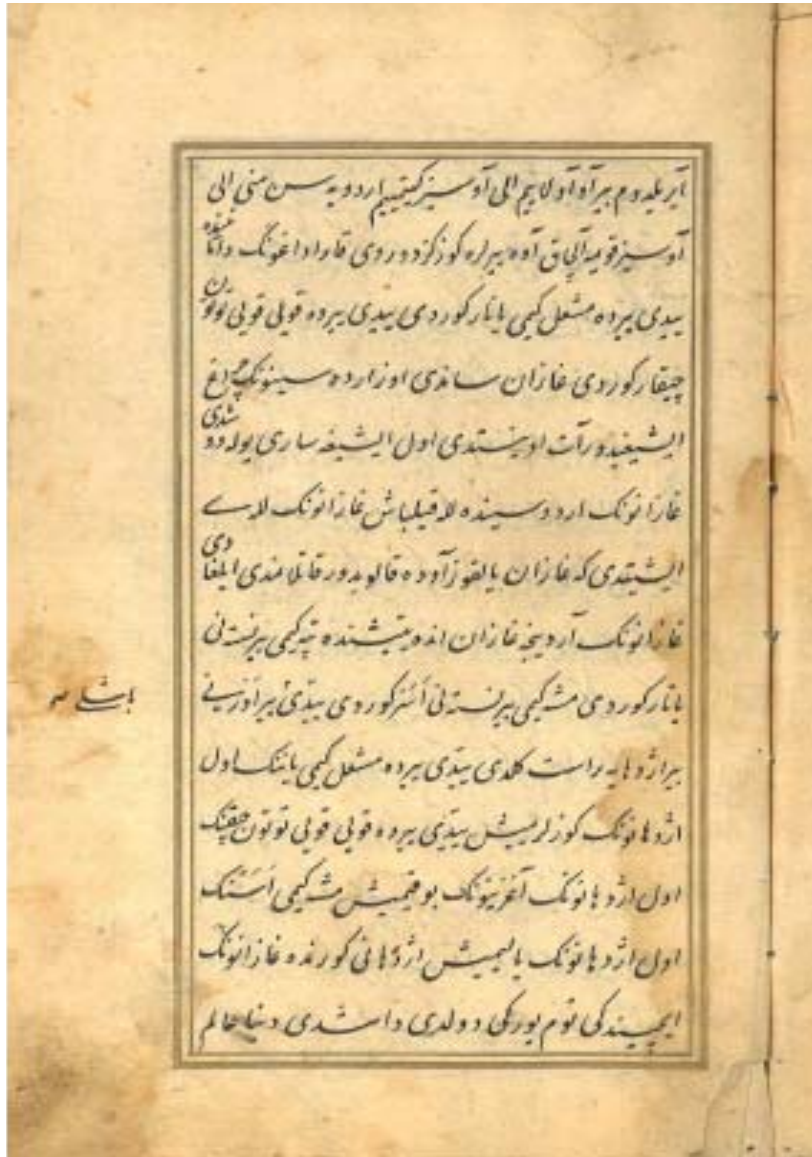 آیریلدوم بیر آو آولاییم الی آوسیز کیتمییم اردویه سن منی الی
آوسیز قویمه آلچاق آوه ییرلره کوز کزدوردی قارا داغونک داتا
ییدی ییرده مشعل کیمی یانار کوردی ییدی ییرده قویی قویی توتون
چیقار کوردی غازان ساندی اوزارده سینونک چراغ
ایشیغیدور آت اوینتدی اول ایشیغه ساری یوله دوشدی
غازانونک اردوسینده للا قیلباش غازانونک للاسے
ایشیتدی که غازان یالقوز آوده قالوبدور قاتلاندی ایلغادی
غازانونک آردینجه غازان انده یتیشنده تپه کیمی بیر نسته نی
یاتار کوردی مشه کیمی بیر نسته نی اسر کوردی ییدی بیر اوزینے
بیر اژدهایه راست کلدی ییدی ییرده مشعل کیمی یاننک اول
اژدهانونک کوزلریمیش ییدی ییرده قویی قویی توتون چیقنک
اول اژدهانونک آغزینونک بوقیمیش مشه کیمی اسنک
اول اژدهانونک یالیمیش اژدهانی کورنده غازانونک
ایچیندکی توم یورکی دولدی داشدی دنیا عالم
باشنه